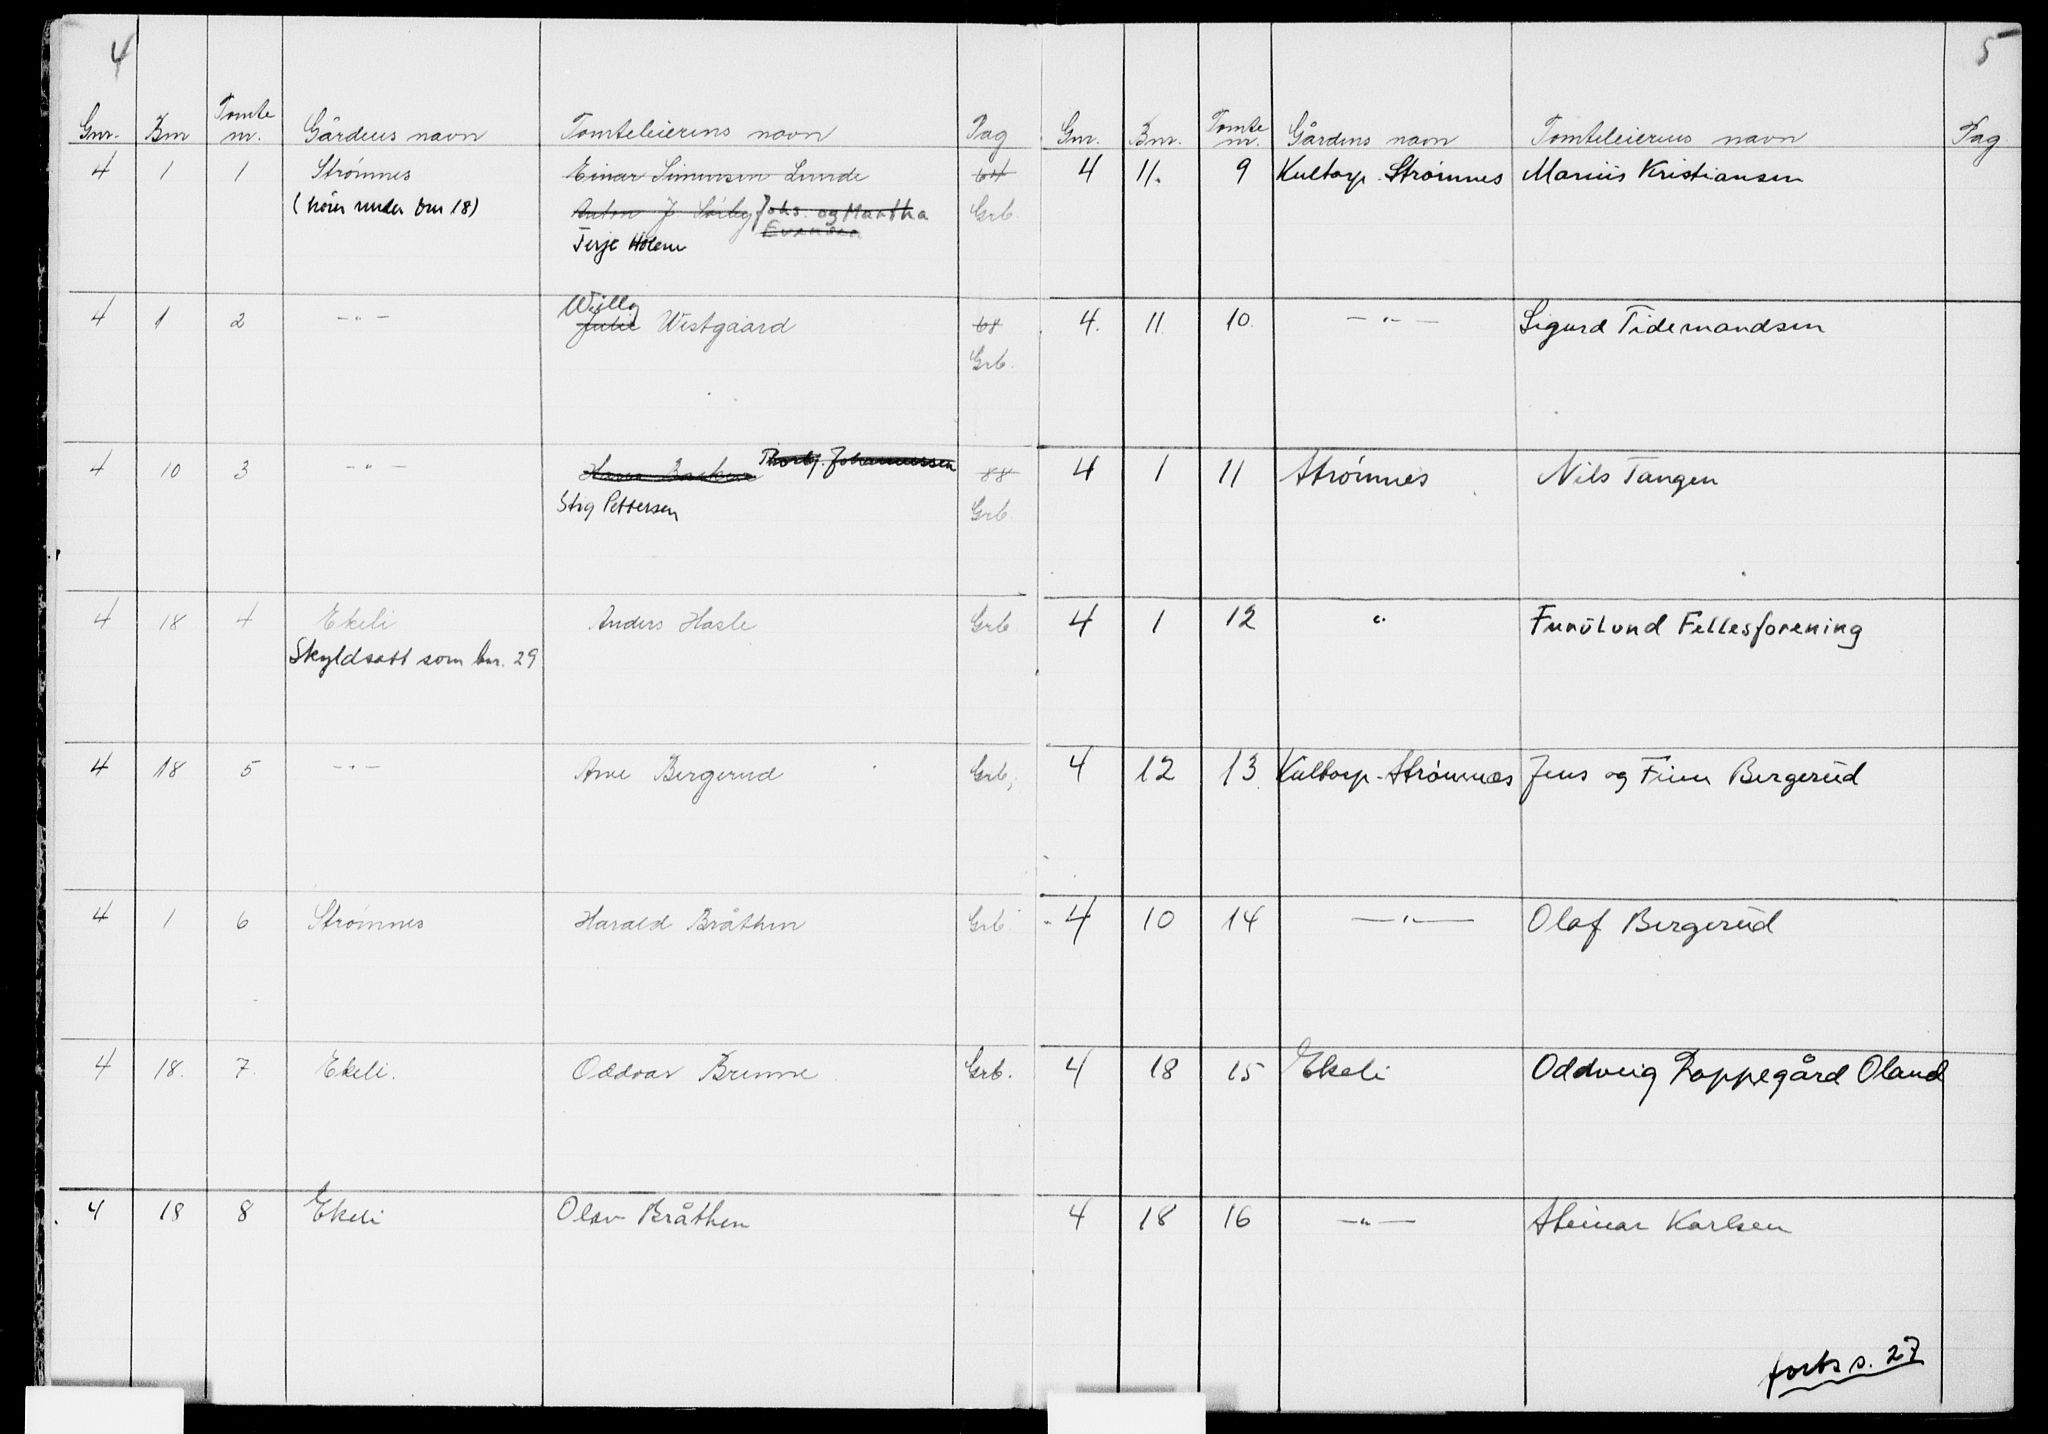 4
Gnr. Bnr Tomte nr. Gårdens navn Tomteleierens navn Pag
4 1 1 Strømnes Einar Simensen Lunde 64
(hører under bnr 18) Anton J. Sørby Johs. og Martha Evensen Grb.
Terje Holem
4 1 2 -"- Willy Julie Westgaard 68
Grb.
4 10 3 -"- Thorbj. Johannessen 88
Stig Pettersen Grb.
4 18 4 Ekeli Anders Hasle Grb.
Skyldsatt som bnr. 29
4 18 5 -"- Arne Bergerud Grb.
4 1 6 Strømnes Harald Bråthen Grb.
4 18. 7. Ekeli. Oddvar Brenne Grb.
4 18 8 Ekeli Olav Bråthen
5
Gnr. Bnr. Tomte nr. Gårdens navn Tomteleierens navn Pag.
4 11. 9 Kultorp-Strømnes Marius Kristiansen
4. 11. 10. -"- Sigurd Tidemandsen
4 1 11 Strømnes Nils Tangen
4 1 12 " Furulund Fellesforening
4 12 13. Kultorp-Strømnes Jens og Finn Bergerud
4 10 14 -"- Olaf Bergerud
4 18 15 Ekeli Oddveig Roppegård Oland
4 18 16 -"- Steinar Karlsen
forts s. 27